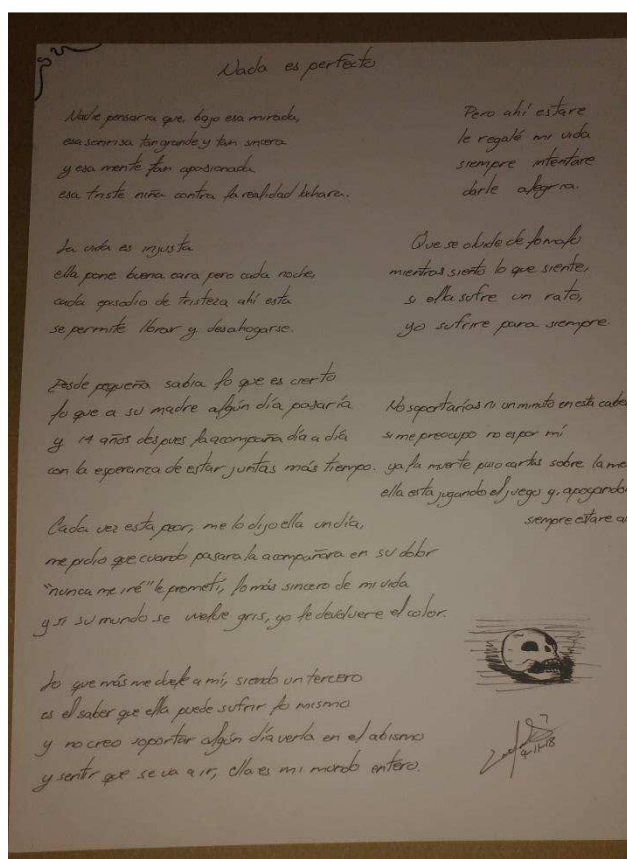 Nada es perfecto
Nadie pensaria que, bajo esa mirada,
esa sonrisa tan grande y tan sincera
y esa mente tan apasionada
esa triste niña contra la realidad luchara.
La vida es injusta
ella pone buena cara pero cada noche,
cada episodio de tristeza ahí esta
se permite llorar y desahogarse.
Desde pequeña sabia lo que es cierto
lo que a su madre algún día pasaría
y 14 años despues la acompaña día a día
con la esperanza de estar juntas más tiempo.
Cada vez esta peor, me lo dijo ella un día,
me pidio que cuando pasara la acompañara en su dolor
"nunca me iré" le prometí, lo más sincero de mi vida
y si su mundo se vuelve gris, yo le devolvere el color.
Lo que más me duele a mí, siendo un tercero
es el saber que ella puede sufrir lo mismo
y no creo soportar algún día verla en el abismo
y sentir que se va a ir, ella es mi mundo entero.
Pero ahí estare
le regalé mi vida
siempre intentare
darle alegria.
Que se olvide de lo malo
mientras siento lo que siente,
si ella sufre un rato,
yo sufrire para siempre.
No soportarías ni un minuto en esta
si me preocupo no es por mí
ya la muerte puso cartas sobre la
ella esta jugando el juego y,
siempre estare